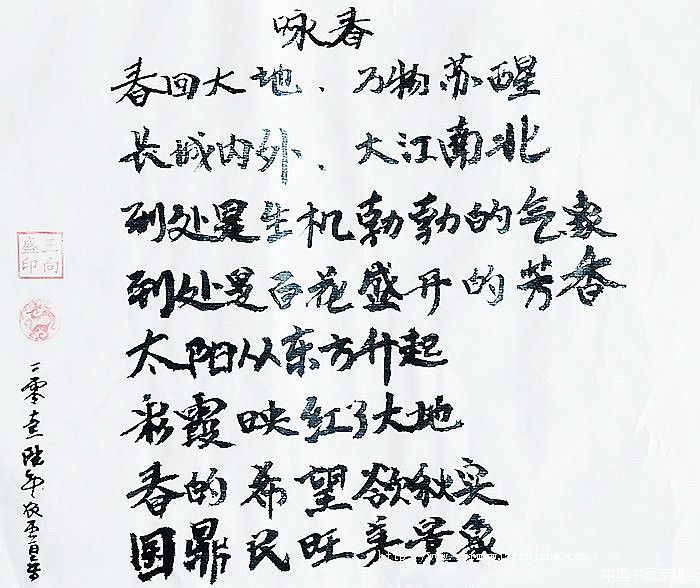 咏春
春回大地、万物苏醒
长城内外、大江南北
到处是生机勃勃的气象
到处是百花盛开的芳香
太阳从东方升起
彩霞映红了大地
春的希望欲秋实
国鼎民旺亲景象
王向
盛印
二零壹陆年
中国书画家协会